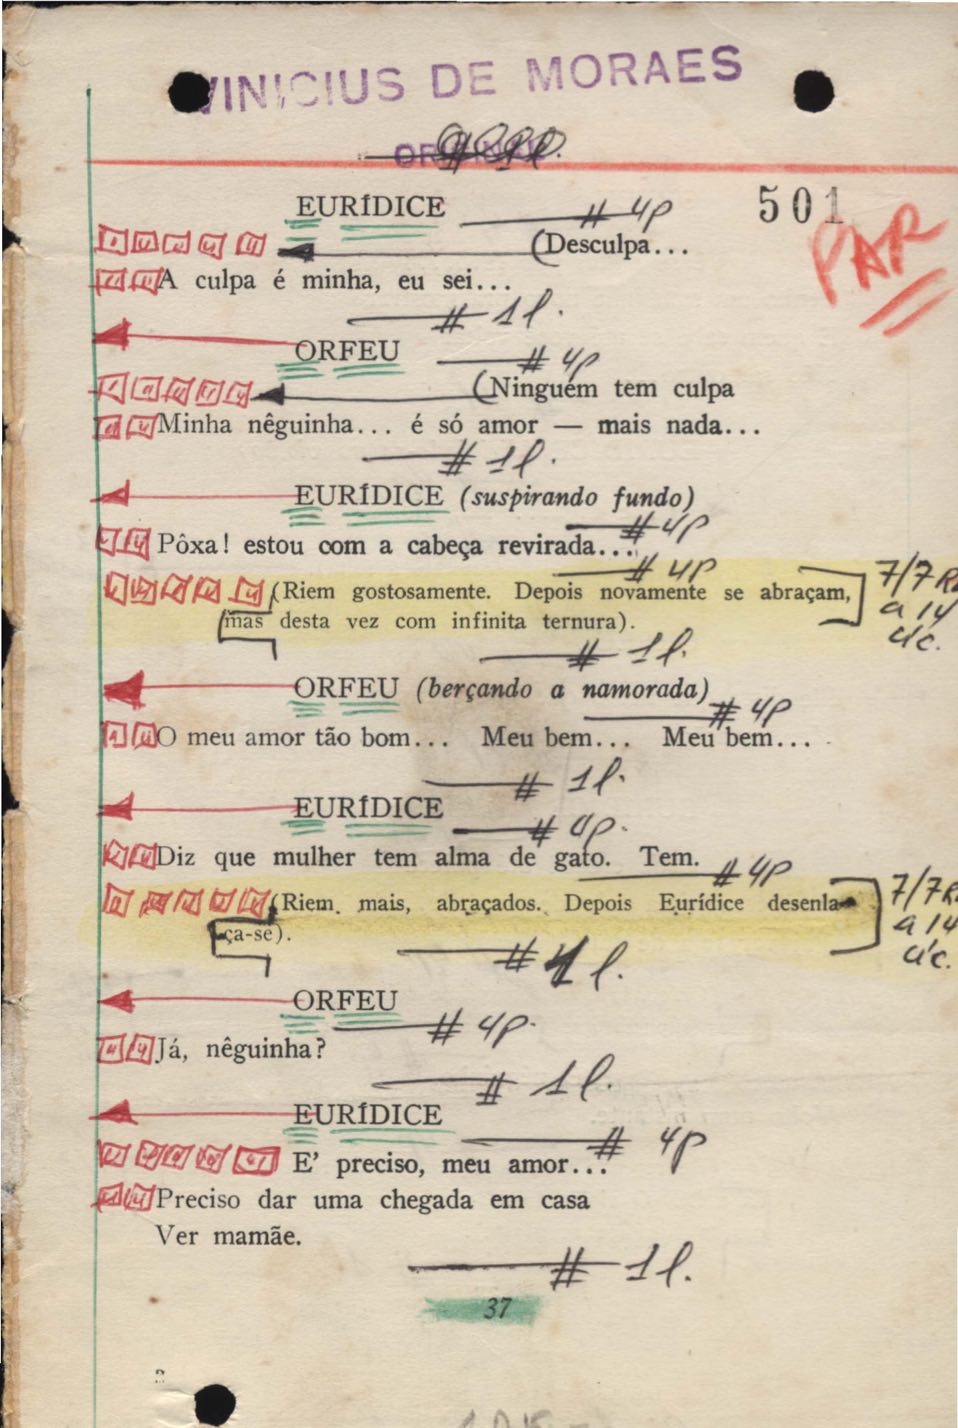 VINICIUS DE MORAES
ORIGINAL
501
PAR
EURÍDICE # 4p
(Desculpa...
A culpa é minha, eu sei...
# 1l.
ORFEU # 4p
(Ninguém tem culpa
Minha nêguinha... é só amor — mais nada...
# 1l.
EURÍDICE (suspirando fundo)
# 4p
Pôxa! estou com a cabeça revirada...
# 4p
(Riem gostosamente. Depois novamente se abraçam, 7/7
mas desta vez com infinita ternura). a 14
# 1l.
ORFEU (berçando a namorada)
# 4p
O meu amor tão bom... Meu bem... Meu bem...
# 1l.
EURÍDICE
# 4p.
Diz que mulher tem alma de gato. Tem.
# 4p
(Riem mais, abraçados. Depois Eurídice desenla- 7/7
ça-se). a 14
# 1 l.
ORFEU
# 4p.
Já, nêguinha?
# 1l.
EURÍDICE
# 4p
E' preciso, meu amor...
Preciso dar uma chegada em casa
Ver mamãe.
# 1l.
37